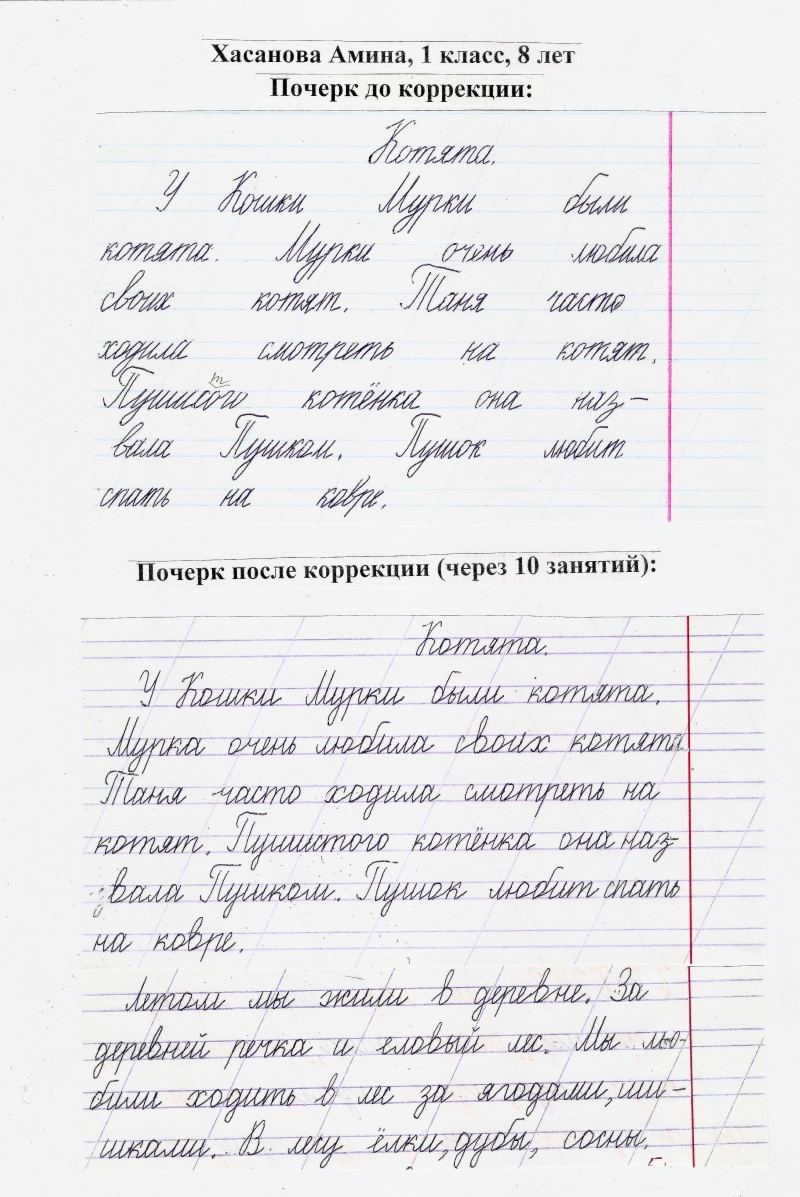 Хасанова Амина, 1 класс, 8 лет
Почерк до коррекции:
Котята.
У Кошки Мурки были
котята. Мурки очень любила
своих котят. Таня часто
ходила смотреть на котят.
Пушистого котёнка она наз-
вала Пушком. Пушок любит
спать на ковре.
Почерк после коррекции (через 10 занятий):
Котята.
У Кошки Мурки были котята.
Мурка очень любила своих котята
Таня часто ходила смотреть на
котят. Пушистого котёнка она наз-
вала Пушком. Пушок любит спать
на ковре.
Летом мы жили в деревне. За
деревней речка и еловый лес. Мы лю-
били ходить в лес за ягодами, ши-
шками. В лесу ёлки, дубы, сосны.